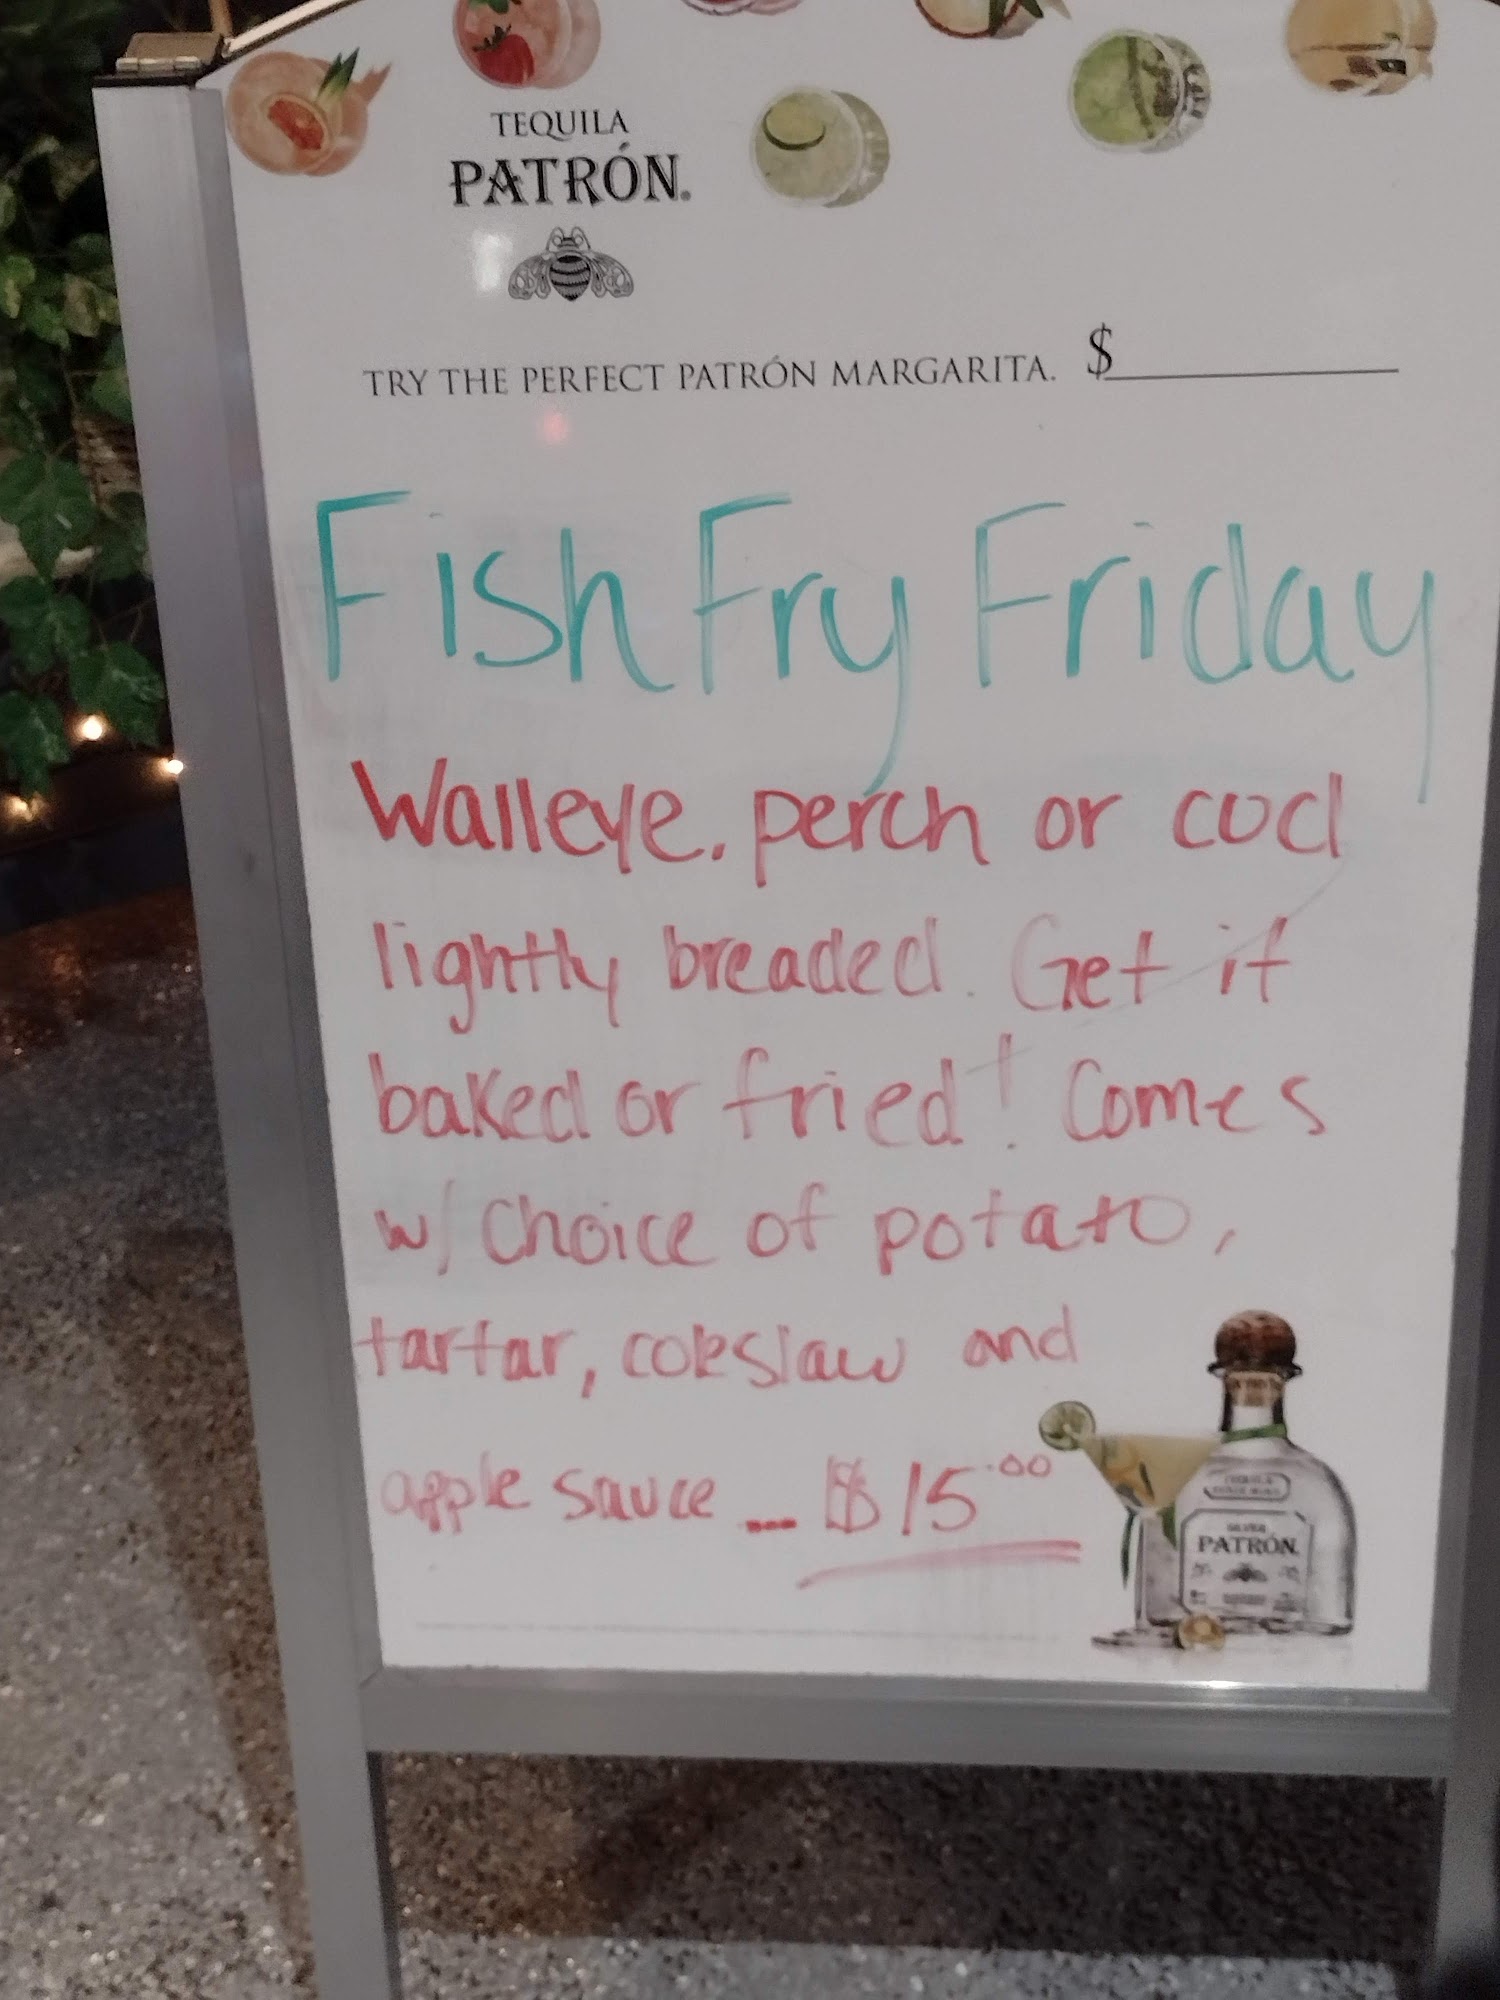 TEQUILA
PATRÓN.
TRY THE PERFECT PATRÓN MARGARITA. $
Fish Fry Friday
Walleye. perch or cod
lightly breaded. Get it
baked or fried! Comes
w/ choice of potato,
tartar, coleslaw and
apple sauce --- $15.00
TEQUILA
SILVER
PATRÓN